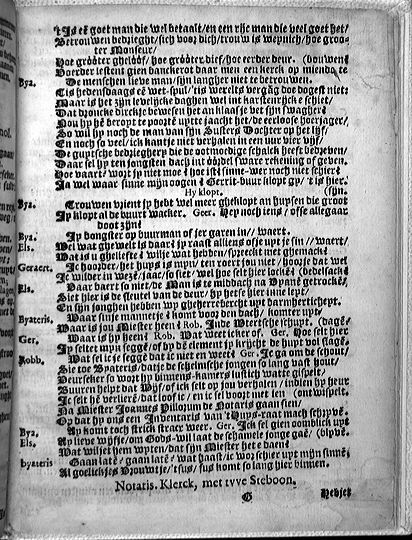 't Is eē goet man die wel betaalt/ en een rijc man die veel goet het/
Betrouwen bedrieght/ sich voor dich/ trouw is wepnich/ hoe groo-
ter Monseur/
Hoe grōōter ghelōōf/ hoe grōōter dief/ hoe eerder deur. (bouwen
Eoerder lestent gien banckerot daar men een kerck op miende te
Bya. De menschen lieve man/ zijn langher niet te betrouwen.
Tis hedensdaags eē wet-spul/ 'tis werelts vergāg doe dogest niet:
Maar is het zijn levelijcke daghen wel int karstenrijcke schiet/
Dat droncke dirckje de wesen het an klaafje de tijns swagher
Hou hy hē beropt te poortē uptte jaacht het/ de eerloose hoerejager/
So wil hy noch de man van sijn Susters Dochter op het lijf/
En noch so veel/ ick kantje niet verhalen in een uur vier vijf/
De guptsche bedriegherij die de ootmoedige schalck heeft bedreven/
Daar sel hy ten jongsten dach int ōōrdel sware rekening of geven.
Hoe vaart? wort jy niet moe? hoe ist? sinne-wer noch niet schier?
Ja wel waar sinne mijn oogen? Gerrit-buur klopt op/ 't is hier.
Hy klopt. (sijn.
Bya. Trouwen vrient jy hebt wel meer gheklopt an hupsen die groot
Jy klopt al de buurt wacker. Geer. Hey noch iens/ ofse allegaar
doot zijn?
Bya. Jy bongster op buurman of ser garen in/ waert.
Els. Wel wat ghewelt is daar? jp raast alliens ofje upt je sin/ waert/
Wat is u gheliefte? wilje wat hebben/ spreeckt met ghemack?
Geraert. Ic hoorder/ het hups is mijn/ ten roert jou niet/ hoorje dat wel
Je wilder in wesē jaa/ so siet/ wel hoe selt hier locken? (bedelsack?
Els. Daar baert so niet/ de Man is te middach na Dyane getrockē/
Siet hier is de sleutel van de deur/ hy het se hier inne lept/
En sijn jonghen hebben wy gheherreberght upt barmhertichept.
Byateris. Waar sinje mannetje? komt voor den dach/ komter upt/
Waar is jou Miester heen? Rob. Inde Weertsche schupt. (dagē/
Ger. Waar is hy heen? Rob. Wat weet icker of. Ger. Hoe selt hier
Jy selt et mijn seggē/ of hp dē element jy krijcht de hupt vol slage.
Robb. Wat sel ic je seggē dat ic niet en weet? Ger. Ic ga om de schout/
Sie toe Byateris/ datje de schelmsche jongen so lang vast hout/
Deurseker so wort hy binnens-kamers lustich watte gispelt/
Buuren helpt dat Wijf/ of ick selt op jou verhalen/ indien hy heur
Ic selt hē verlierē/ dat loof ic/ en ic sel voort met ten (ontwispelt.
Na Miester Joannes Pilorum de Notaris gaan sien/
Op dat hy ons een Inventaris van 't hups-raat mach schryvē.
Bya. Ay komt toch strick straer weer. Ger. Ick sel gien oomblick upt
Els. Ay lieve wijfje/ om Gods-wil laat de schamele jonge gaē/ (blyvē.
Wat wil jet hem wpten/ dat sijn Miester het e daen?
byateris Gaan latē? gaan latē? wat haast/ ic wor schier upt mijn sinnē/
Al goelickjes Vrouwtje/ tsus/ sus komt so lang hier binnen.
Notaris. Klerck, met tvve Steboon.
G Hebjet